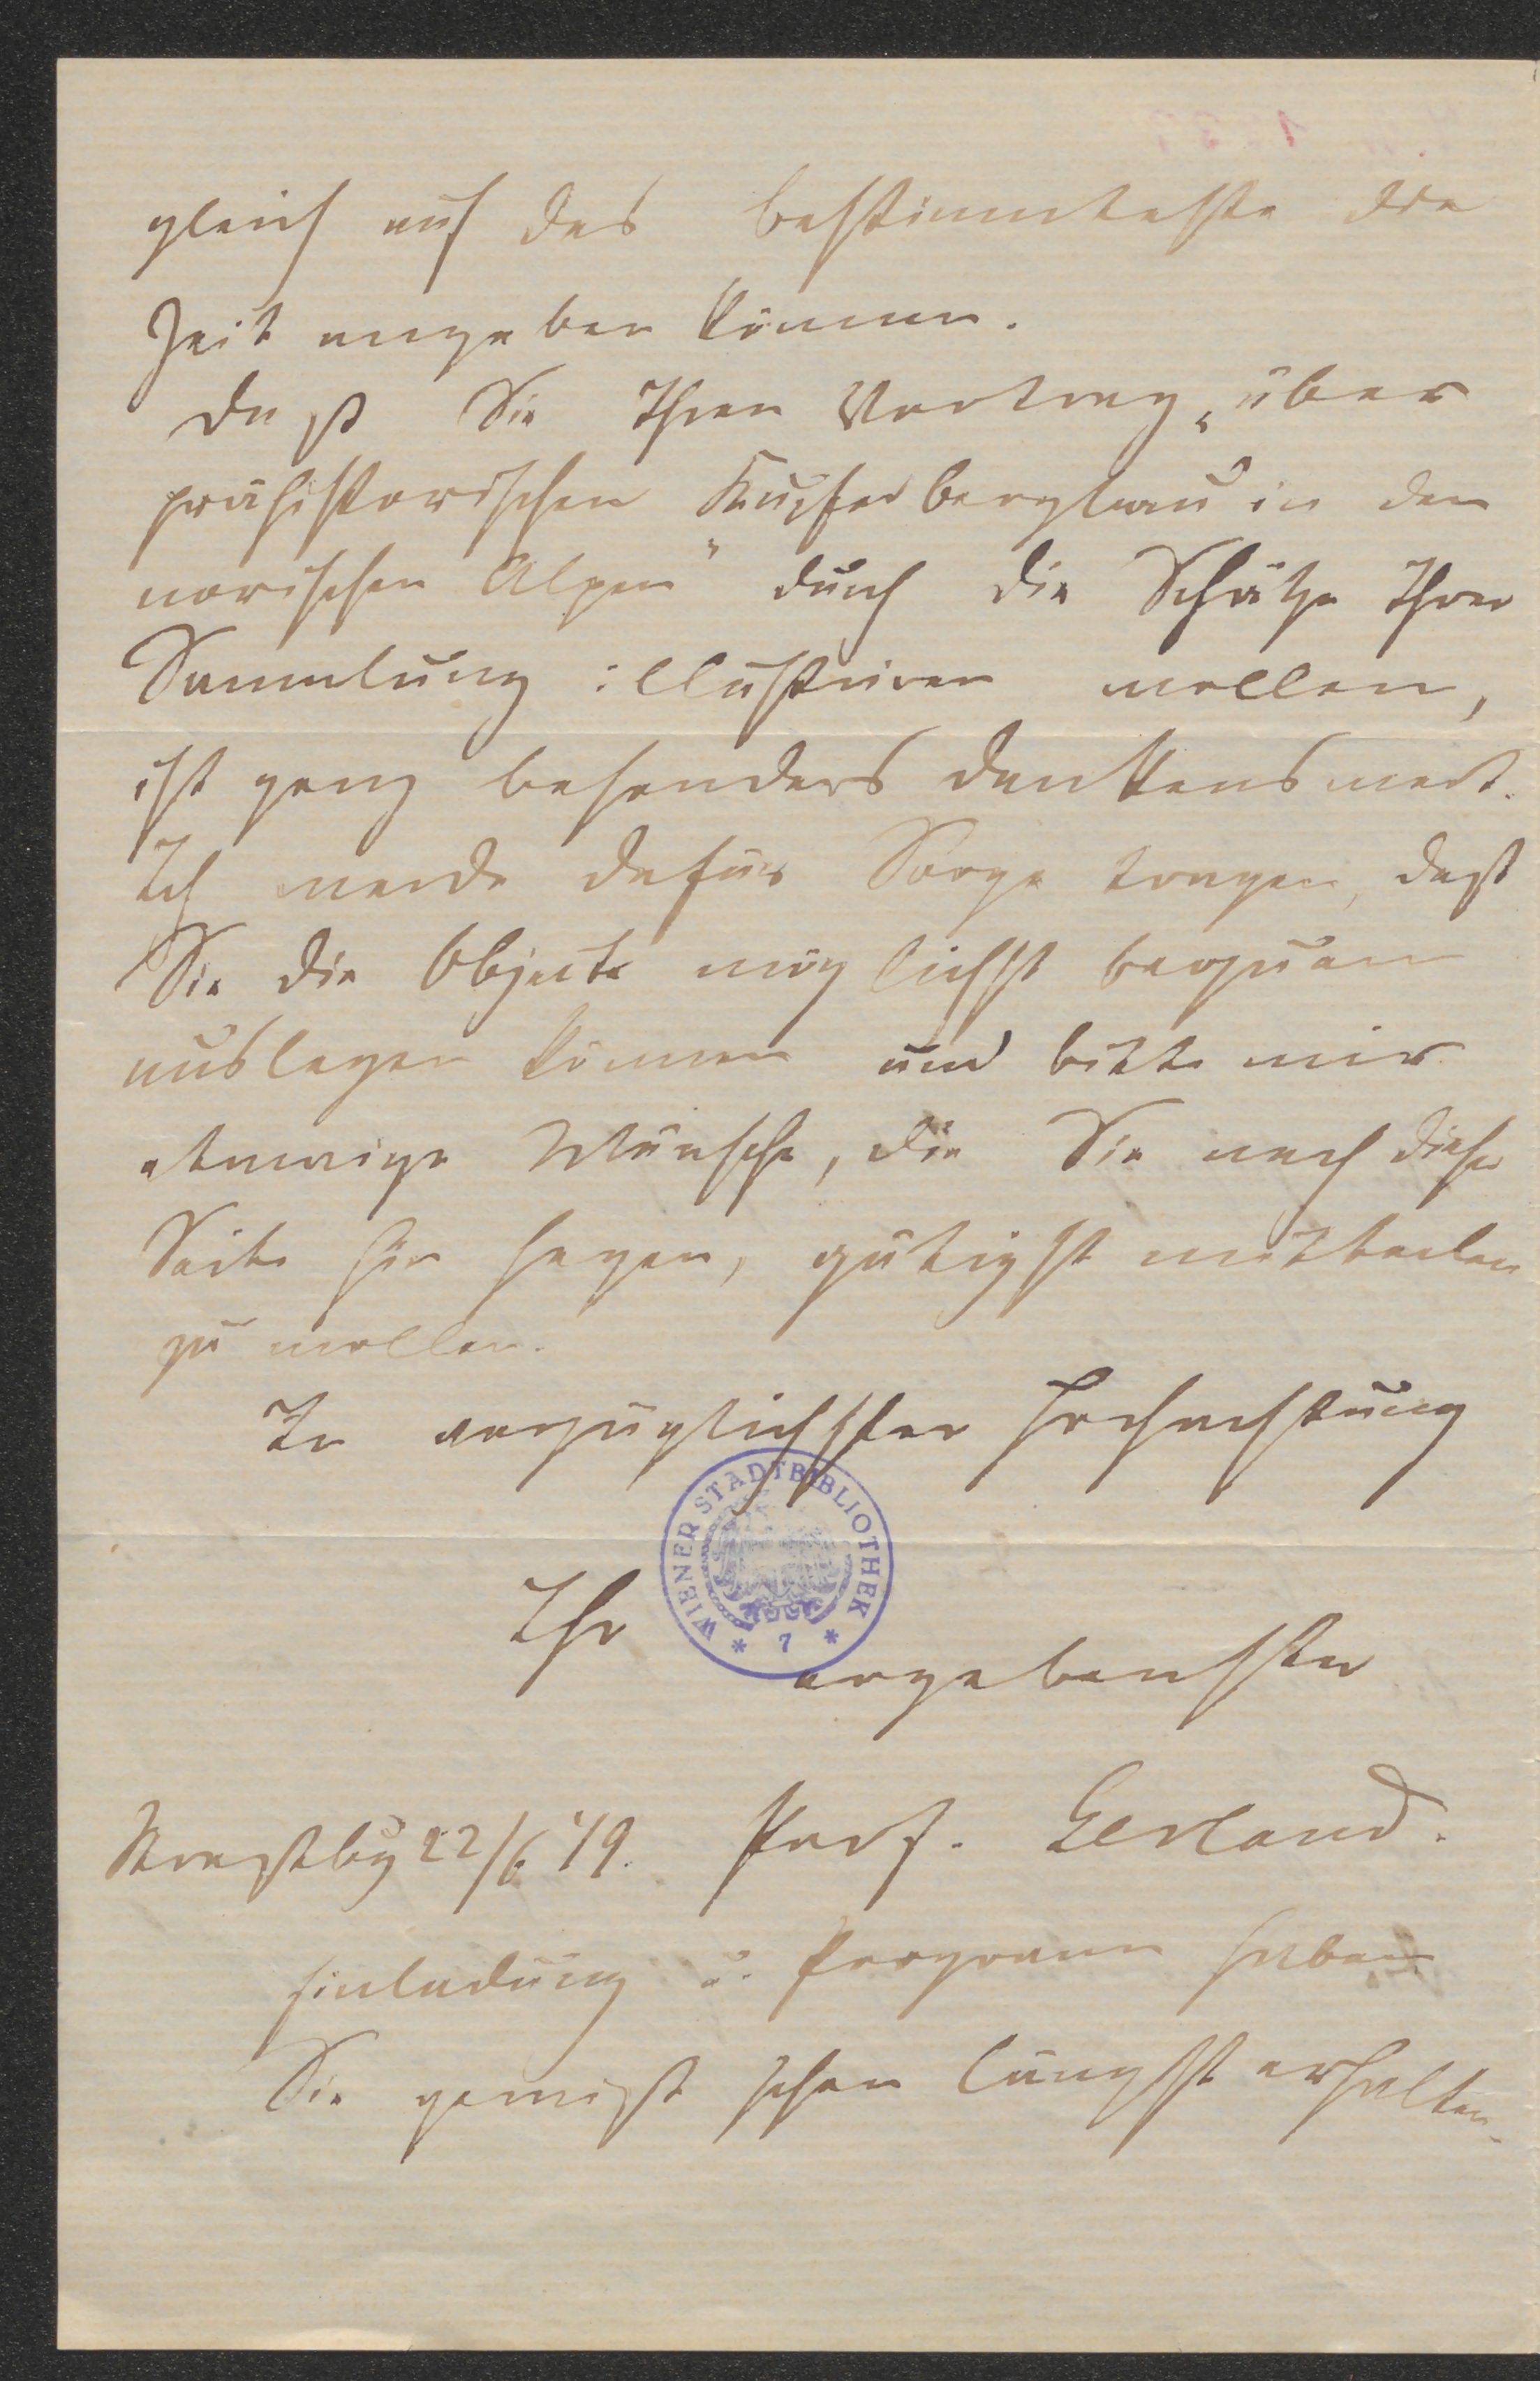 gleich auf das bestimmteste die
Zeit angeben können.
Daß Sie Ihren Vortrag „über
prähistorischen Kupferbergbau in den
norischen Alpen“ durch die Schätze Ihrer
Sammlung illustriren wollen,
ist ganz besonders dankenswert.
Ich werde dafür Sorge tragen, daß
Sie die Objecte möglichst bequem
auslegen können und bitte mir
etwaige Wünsche, die Sie nach dieser
Seite hin hegen, gütigst mitteilen
zu wollen.
In vorzüglichster Hochachtung
WIENER STADTBIBLIOTHEK
* 7 *
Ihr
ergebenster
Straßbg 22/6 79. Prof. Gerland.
Einladung u. Programm haben
Sie gewißt schon längst erhalten.